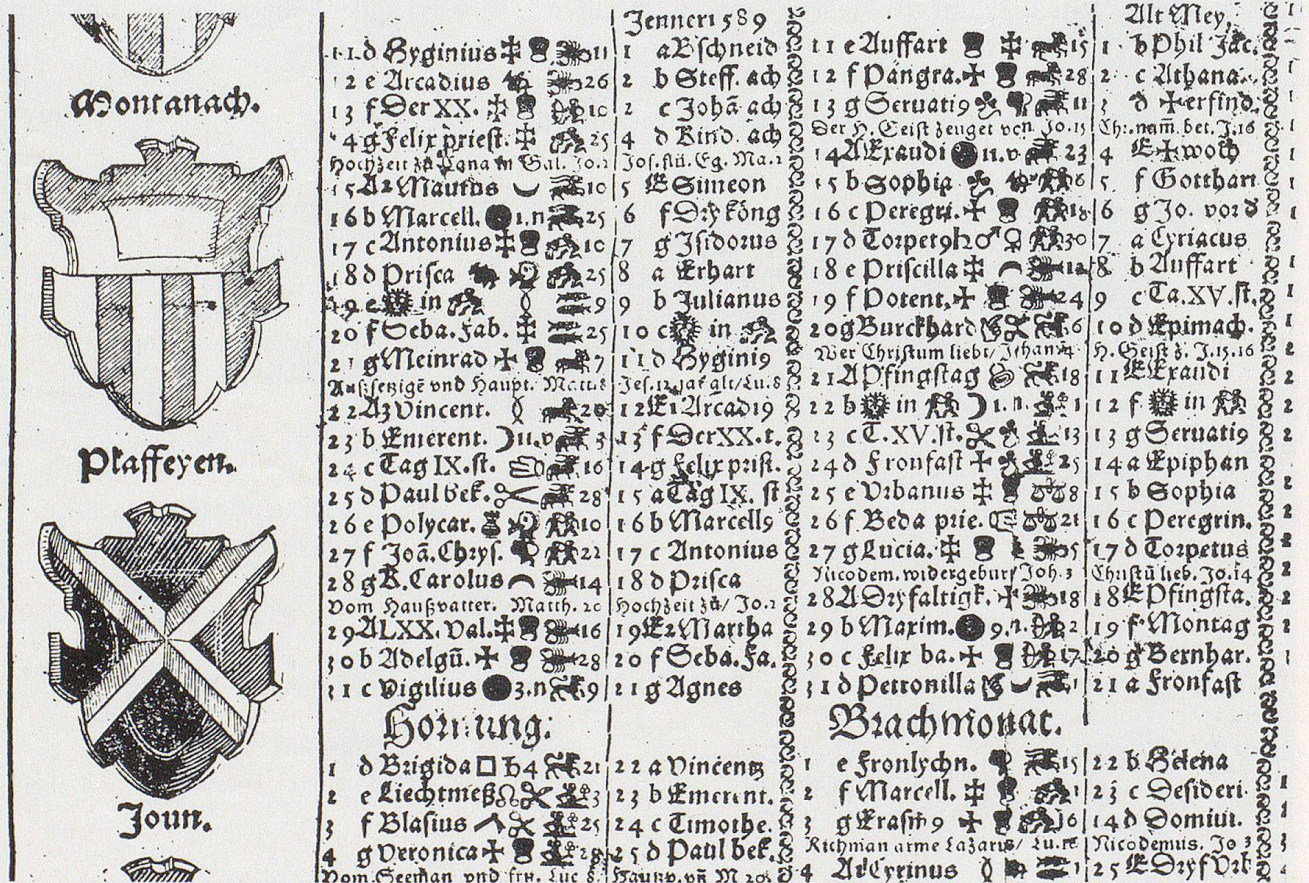 Montanach.
Plaffeyen.
Joun.
11 d Hyginius 11
12 e Arcadius 26
13 f Der XX. 10
14 g Felix priest. 25
Hochzeit zů Cana in Gal. Jo. 2
15 A2 Maurus 10
16 b Marcell. 1.n 25
17 c Antonius 10
18 d Prisca 25
19 e in 9
20 f Seba. Fab. 25
21 g Meinrad 7
Außsetzige vnd Haupt. Matt. 8
22 A3 Vincent. 20
23 b Emerent. 11.v 3
24 c Tag IX. st. 16
25 d Paul bek. 28
26 e Polycar. 10
27 f Joã. Chrys. 22
28 g K. Carolus 14
Vom Haußvatter. Matth. 20
29 A LXX. Val. 16
30 b Adelgũ. 28
31 c Vigilius 3.n 9
Hornung.
1 d Brigida 21
2 e Liechtmeß 3
3 f Blasius 25
4 g Veronica 28
Vom Seeman vnd Luc 8.
Jenner 1589
1 a Bschneid
2 b Steff. ach
2 c Johã ach
4 d Kind. ach
Jos. flü. Eg. Ma. 2
5 E Simeon
6 f Dry köng
7 g Isidorus
8 a Erhart
9 b Julianus
10 c in
11 d Hygini9
Jes. 12. jar alt/Lu. 8
12 E1 Arcadi9
13 f Der XX. t.
14 g Felix prist.
15 a Tag IX. st
16 b Marcell9
17 c Antonius
18 d Prisca
Hochzeit zů/ Jo. 2
19 E2 Martha
20 f Seba. Fa.
21 g Agnes
22 a Vincentz
23 b Emerent.
24 c Timothe.
25 d Paul bek.
11 e Auffart 15
12 f Pangra. 28
13 g Seruati9 11
Der H. Geist zeuget von Jo. 15
14 A Exaudi 11.v 23
15 b Sophia 6
16 c Peregri. 18
17 d Torpet9 30
18 e Priscilla 12
19 f Potent. 24
20 g Burckhard 6
Wer Christum liebt/ Johan 14
21 A Pfingstag 18
22 b in 1.n. 1
23 c T. XV. st. 13
24 d Fronfast 25
25 e Vrbanus 8
26 f Beda prie. 21
27 g Lucia. 5
Nicodem. widergeburt Joh. 3
28 A Dryfaltigk. 18
29 b Maxim. 9.n. 2
30 c Felix ba. 17
31 d Petronilla 1
Brachmonat.
1 e Fronlychn. 15
2 f Marcell. 1
3 g Erasm9 16
Richman arme Lazarus/ Lu. 16
4 A1 Cyrinus 1
Alt Mey.
1 b Phil Jac.
2 c Athana.
3 d erfind.
Chr. nam. bet. J. 16
4 E woch
5 f Gotthart
6 g Jo. vor d
7 a Cyriacus
8 b Auffart
9 c Ta. XV. st.
10 d Epimach.
H. Geist z. J. 15. 16
11 E Exaudi
12 f in
13 g Seruati9
14 a Epiphan
15 b Sophia
16 c Peregrin.
17 d Torpetus
Christũ lieb. Jo. 14
18 E Pfingsta.
19 f Montag
20 g Bernhar.
21 a Fronfast
22 b Helena
23 c Desideri
14 d Domiti.
Nicodemus. Jo 3
25 E Dryf Vrb